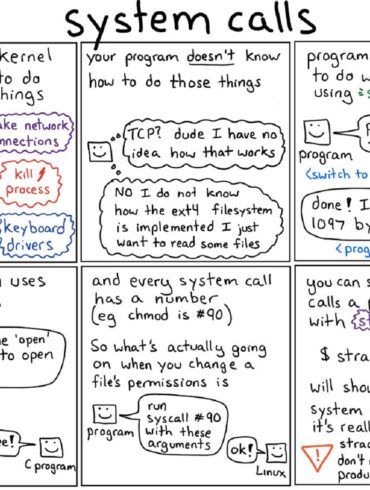 system calls
kernel
to do
things
network
kill
process
keyboard
drivers
your program doesn't know
how to do those things
TCP? dude I have no
idea how that works
NO I do not know
how the ext4 filesystem
is implemented I just
want to read some files
program
to do w
using
program
<switch to
done! I
1097 by
<prog
uses
'open'
to open
C program
and every system call
has a number
(eg chmod is #90)
So what's actually going
on when you change a
file's permissions is
program
run
syscall #90
with these
arguments
ok!
Linux
you can s
calls a p
with
$ stra
will shou
system
it's reall
strac
don't
produ